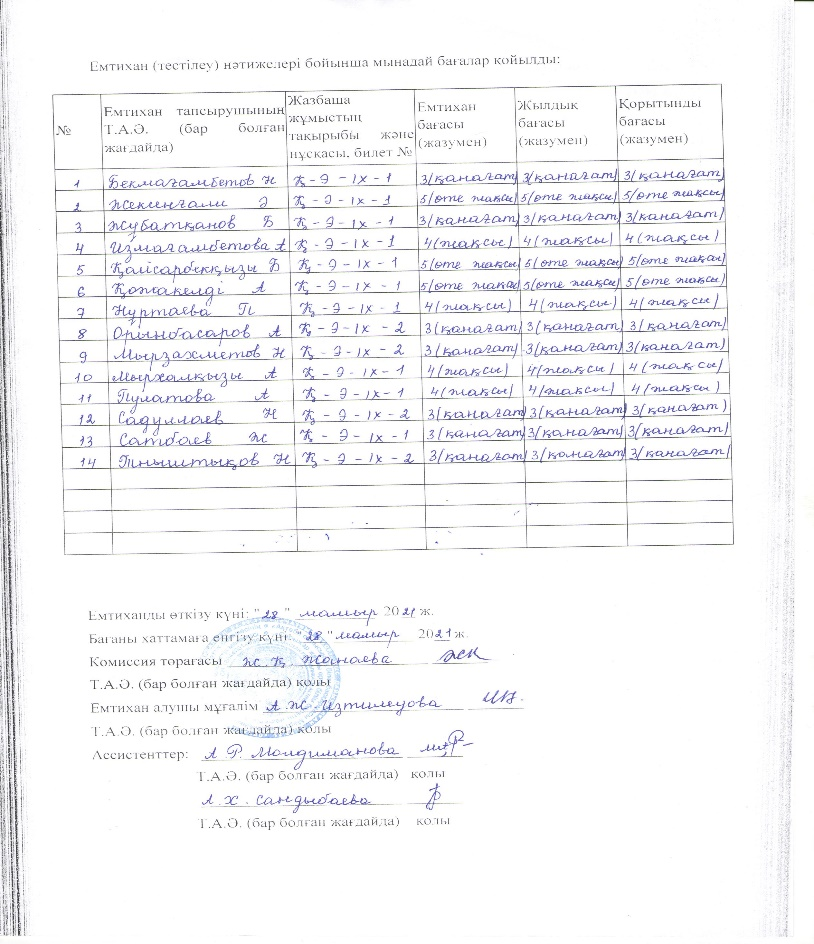 Емтихан (тестілеу) нәтижелері бойынша мынадай бағалар қойылды:
№ Емтихан тапсырушының Т.А.Ә. (бар болған жағдайда) Жазбаша жұмыстың тақырыбы және нұсқасы, билет № Емтихан бағасы (жазумен) Жылдық бағасы (жазумен) Қорытынды бағасы (жазумен)
1 Бекмағамбетов Н Қ-Э-IX-1 3/қанағат/ 3/қанағат/ 3/қанағат/
2 Жексенғали Ә Қ-Э-IX-1 5/өте жақсы/ 5/өте жақсы/ 5/өте жақсы/
3 Жубатқанов Б Қ-Э-IX-1 3/қанағат/ 3/қанағат/ 3/қанағат/
4 Измағамбетова А Қ-Э-IX-1 4/жақсы/ 4/жақсы/ 4/жақсы/
5 Қайсарбекқызы Б Қ-Э-IX-1 5/өте жақсы/ 5/өте жақсы/ 5/өте жақсы/
6 Қожакелді А Қ-Э-IX-1 5/өте жақсы/ 5/өте жақсы/ 5/өте жақсы/
7 Нұртаева П Қ-Э-IX-1 4/жақсы/ 4/жақсы/ 4/жақсы/
8 Орынбасаров А Қ-Э-IX-2 3/қанағат/ 3/қанағат/ 3/қанағат/
9 Мырзахметов Н Қ-Э-IX-2 3/қанағат/ 3/қанағат/ 3/қанағат/
10 Мырхалқызы А Қ-Э-IX-1 4/жақсы/ 4/жақсы/ 4/жақсы/
11 Пулатова А Қ-Э-IX-1 4/жақсы/ 4/жақсы/ 4/жақсы/
12 Садуллаев Н Қ-Э-IX-2 3/қанағат/ 3/қанағат/ 3/қанағат/
13 Сатбаев Ж Қ-Э-IX-1 3/қанағат/ 3/қанағат/ 3/қанағат/
14 Тныштықов Н Қ-Э-IX-2 3/қанағат/ 3/қанағат/ 3/қанағат/
Емтиханды өткізу күні: "28" мамыр 2021 ж.
Бағаны хаттамаға енгізу күні: "28" мамыр 2021 ж.
Комиссия торағасы Ж.Қ. Жанаева
Т.А.Ә. (бар болған жағдайда) қолы
Емтихан алушы мұғалім А.Ж. Изтилеуова
Т.А.Ә. (бар болған жағдайда) қолы
Ассистенттер: А.Р. Молдиманова
Т.А.Ә. (бар болған жағдайда) қолы
А.Х. Сандыбаева
Т.А.Ә. (бар болған жағдайда) қолы